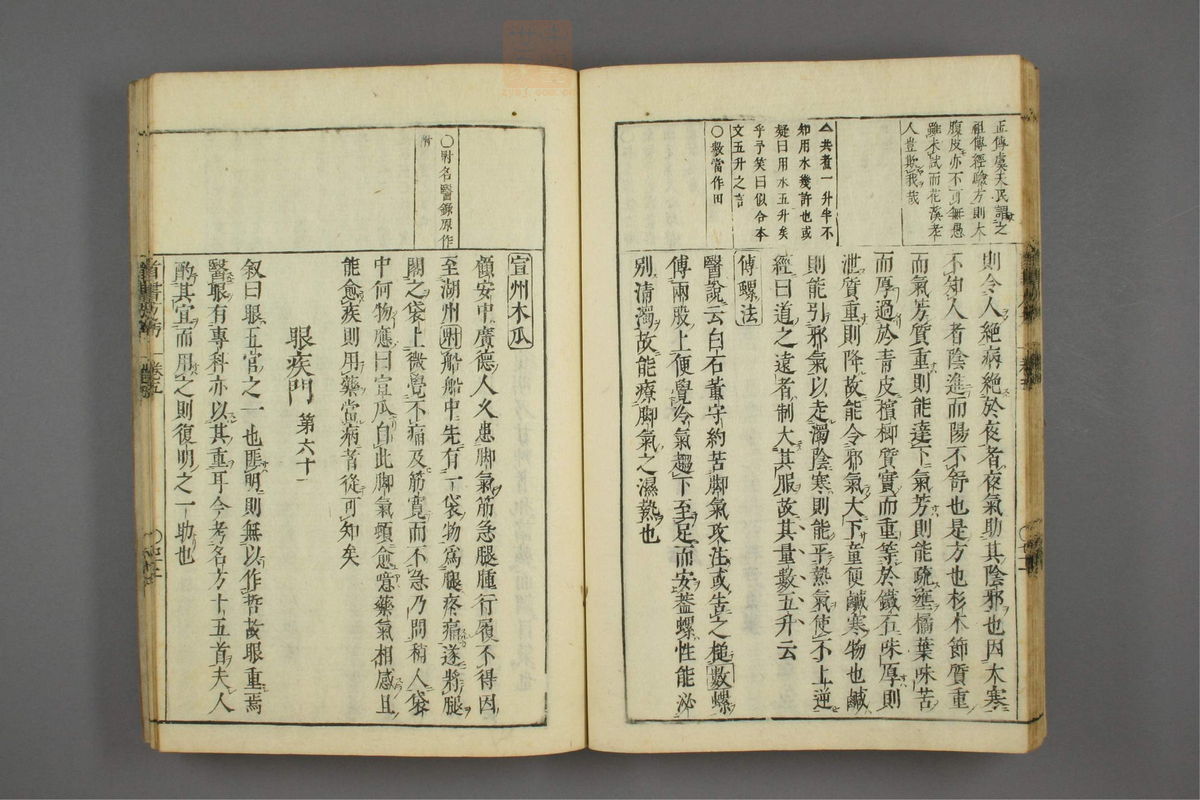 正傳虞天民謂之
祖傳經驗方則木
腹皮亦不可無愚
雖未試而花溪老
人豈欺我哉
共煮一升半不
知用水幾許也或
疑曰用水五升矣
乎予笑曰似合本
文五升之言
〇數當作田
則令人絕病絕於夜者夜氣助其陰邪也因木寒
不知人者陰進而陽不舒也是方也杉木節質重
而氣芳質重則能達下氣芳則能疏壅橘葉味苦
而厚過於青皮檳榔質實而重等於鐵石味厚則
泄質重則降故能令邪氣大下童便鹹寒物也鹹
則能引邪氣以走濁陰寒則能平熱氣使不上逆
經曰道之遠者制大其服故其量數五升云
傅螺法
醫說云白石董守約苦脚氣攻注或告之槌數螺
傅兩股上便覺冷氣趨下至足而安蓋螺性能泌
別清濁故能療脚氣之濕熱也
〇附名醫錄原作
附
宣州木瓜
顧安中廣德人久患脚氣筋急腿腫行履不得因
至湖州附船船中先有一袋物爲腿疼痛遂將腿
閣之袋上微覺不痛及筋寬而不急乃問稍人袋
中何物應曰宣瓜自此脚氣頓愈噫藥氣相感且
能愈疾則用藥當病者從可知矣
眼疾門 第六十一
叙曰眼五官之一也匪明則無以作哲故眼重焉
醫眼有專科亦以其重耳今考名方十五首夫人
酌其宜而用之則復明之一助也